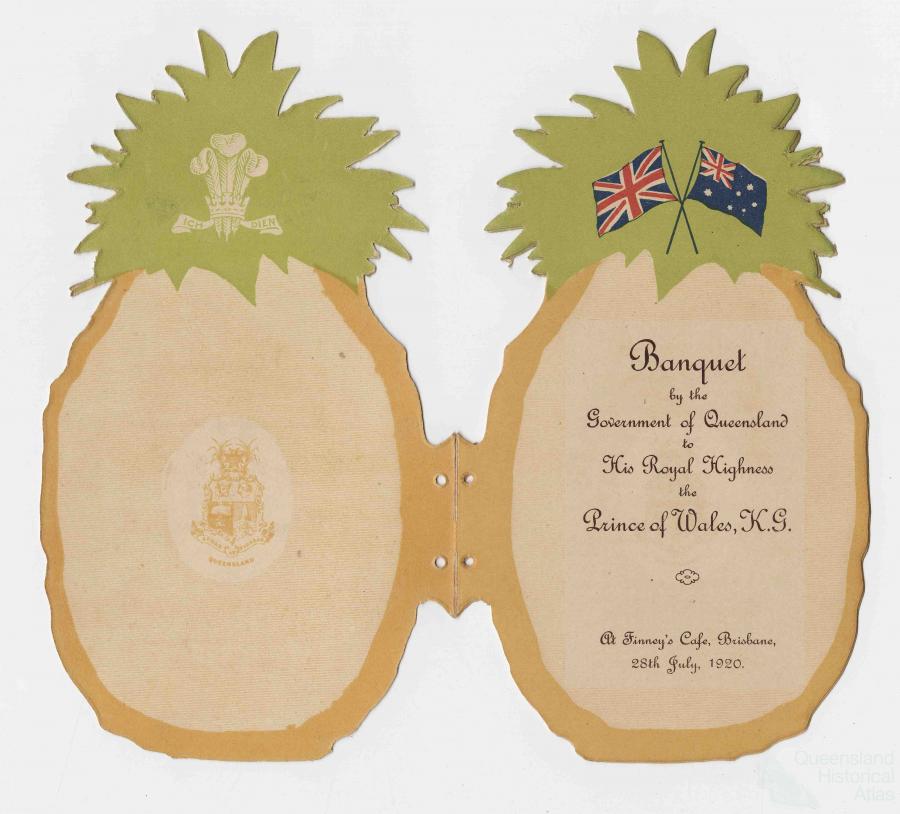 ICH DIEN
QUEENSLAND
Banquet
by the
Government of Queensland
to
His Royal Highness
the
Prince of Wales, K.G.
At Finney's Cafe, Brisbane,
28th July, 1920.
Queensland
Historical
Atlas